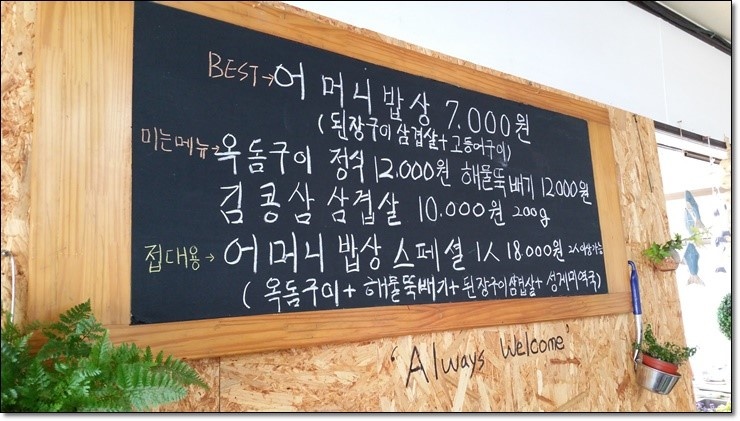 BEST→어머니밥상 7.000원
(된장구이삼겹살+고등어구이)
미는메뉴→옥돔구이 정식 12.000원 해물뚝배기 12000원
김콩삼 삼겹살 10.000원 200g
접대용→어머니 밥상 스페셜 1人 18000원 2人이상가능
(옥돔구이+해물뚝배기+된장구이삼겹살+성게미역국)
'Always Welcome'